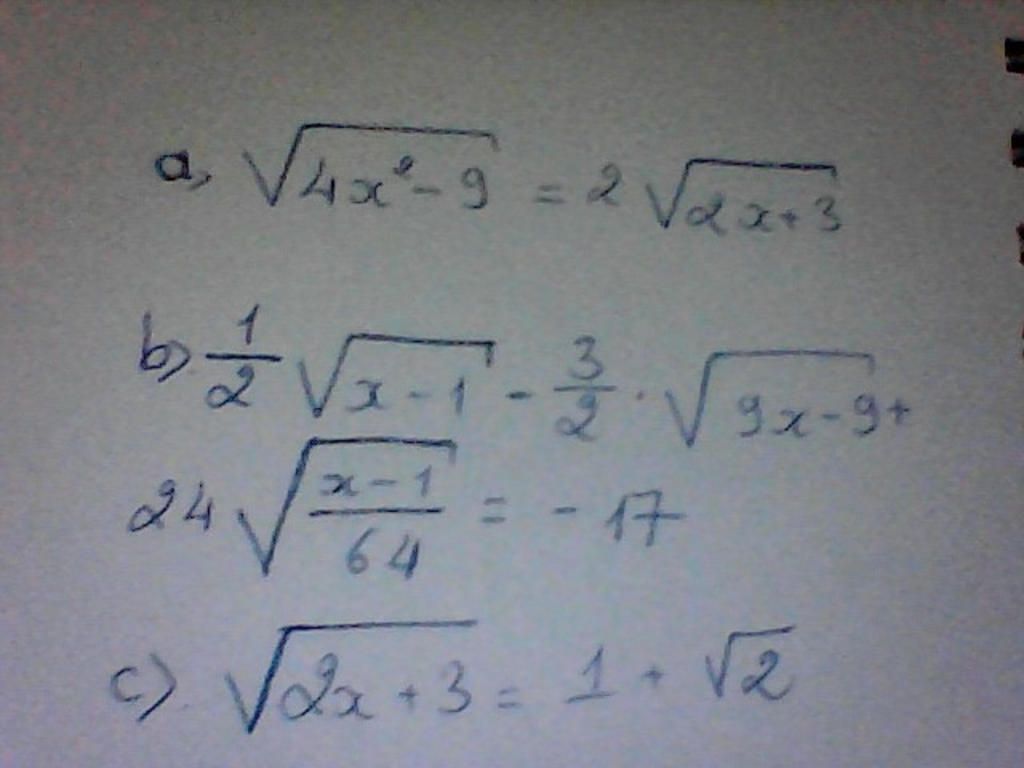 a, √(4x² - 9) = 2 √(2x + 3)
b) 1/2 √(x - 1) - 3/2 · √(9x - 9) +
24 √((x - 1)/64) = - 17
c). √(2x + 3) = 1 + √2